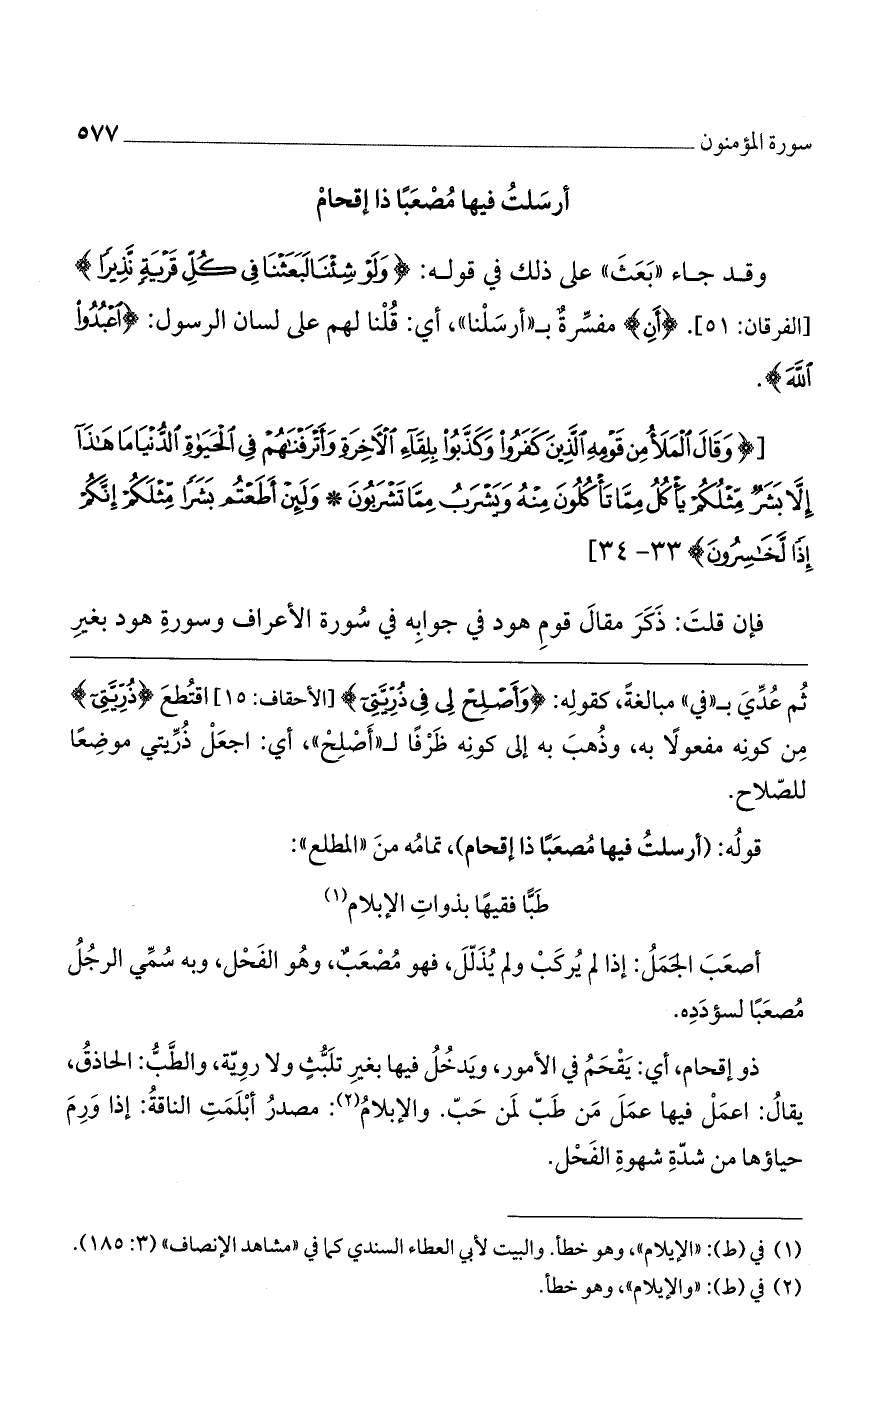 سورة المؤمنون ٥٧٧
أرسَلتُ فيها مُصْعَبًا ذا إقحامْ
وقد جاء «بَعَثَ» على ذلك في قوله: ﴿وَلَوْ شِئْنَا لَبَعَثْنَا فِى كُلِّ قَرْيَةٍ نَّذِيرًا﴾
[الفرقان: ٥١]. ﴿أَنِ﴾ مفسِّرةٌ بـ«أرسَلْنا»، أي: قُلْنا لهم على لسان الرسول: ﴿ٱعْبُدُوا۟
ٱللَّهَ﴾.
[﴿وَقَالَ ٱلْمَلَأُ مِن قَوْمِهِ ٱلَّذِينَ كَفَرُوا۟ وَكَذَّبُوا۟ بِلِقَآءِ ٱلْأَخِرَةِ وَأَتْرَفْنَٰهُمْ فِى ٱلْحَيَوٰةِ ٱلدُّنْيَا مَا هَٰذَآ
إِلَّا بَشَرٌ مِّثْلُكُمْ يَأْكُلُ مِمَّا تَأْكُلُونَ مِنْهُ وَيَشْرَبُ مِمَّا تَشْرَبُونَ * وَلَئِنْ أَطَعْتُم بَشَرًا مِّثْلَكُمْ إِنَّكُمْ
إِذًا لَّخَٰسِرُونَ﴾ ٣٣- ٣٤]
فإن قلتَ: ذَكَرَ مقالَ قومِ هود في جوابِه في سُورة الأعراف وسورةِ هود بغيرِ
ثُم عُدِّيَ بـ«في» مبالغةً، كقولِه: ﴿وَأَصْلِحْ لِى فِى ذُرِّيَّتِىٓ﴾ [الأحقاف: ١٥] اقتُطعَ ﴿ذُرِّيَّتِىٓ﴾
مِن كونِه مفعولًا به، وذُهبَ به إلى كونِه ظَرْفًا لـ«أَصْلِحْ»، أي: اجعَلْ ذُرِّيتي موضِعًا
للصّلاح.
قولُه: (أرسلتُ فيها مُصعَبًا ذا إقحام)، تمامُه منَ «المطلع»:
طَبًّا فقيهًا بذواتِ الإبلام(١)
أصعَبَ الجَمَلُ: إذا لم يُركَبْ ولم يُذَلَّلَ، فهو مُصْعَبٌ، وهُو الفَحْل، وبه سُمِّي الرجُلُ
مُصعَبًا لسؤدَدِه.
ذو إقحام، أي: يَقْحَمُ في الأمور، ويَدخُلُ فيها بغيرِ تلَبُّثٍ ولا رويّة، والطَّبُّ: الحاذقُ،
يقالُ: اعمَلْ فيها عمَلَ مَن طَبّ لمَن حَبّ. والإبلامُ(٢): مصدرُ أبْلَمَتِ الناقةُ: إذا وَرِمَ
حياؤها من شدّةِ شهوةِ الفَحْل.
(١) في (ط): «الإيلام»، وهو خطأ. والبيت لأبي العطاء السندي كما في «مشاهد الإنصاف» (٣: ١٨٥).
(٢) في (ط): «والإيلام»، وهو خطأ.